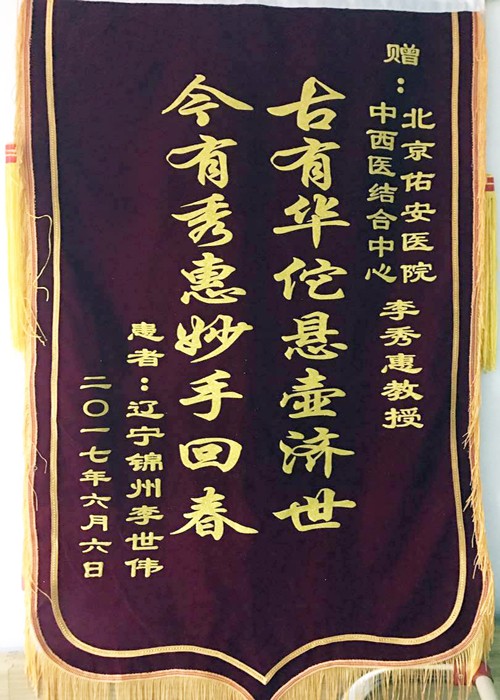 赠：北京佑安医院
中西医结合中心
李秀惠教授
古有华佗悬壶济世
今有秀惠妙手回春
患者：辽宁锦州李世伟
二〇一七年六月六日